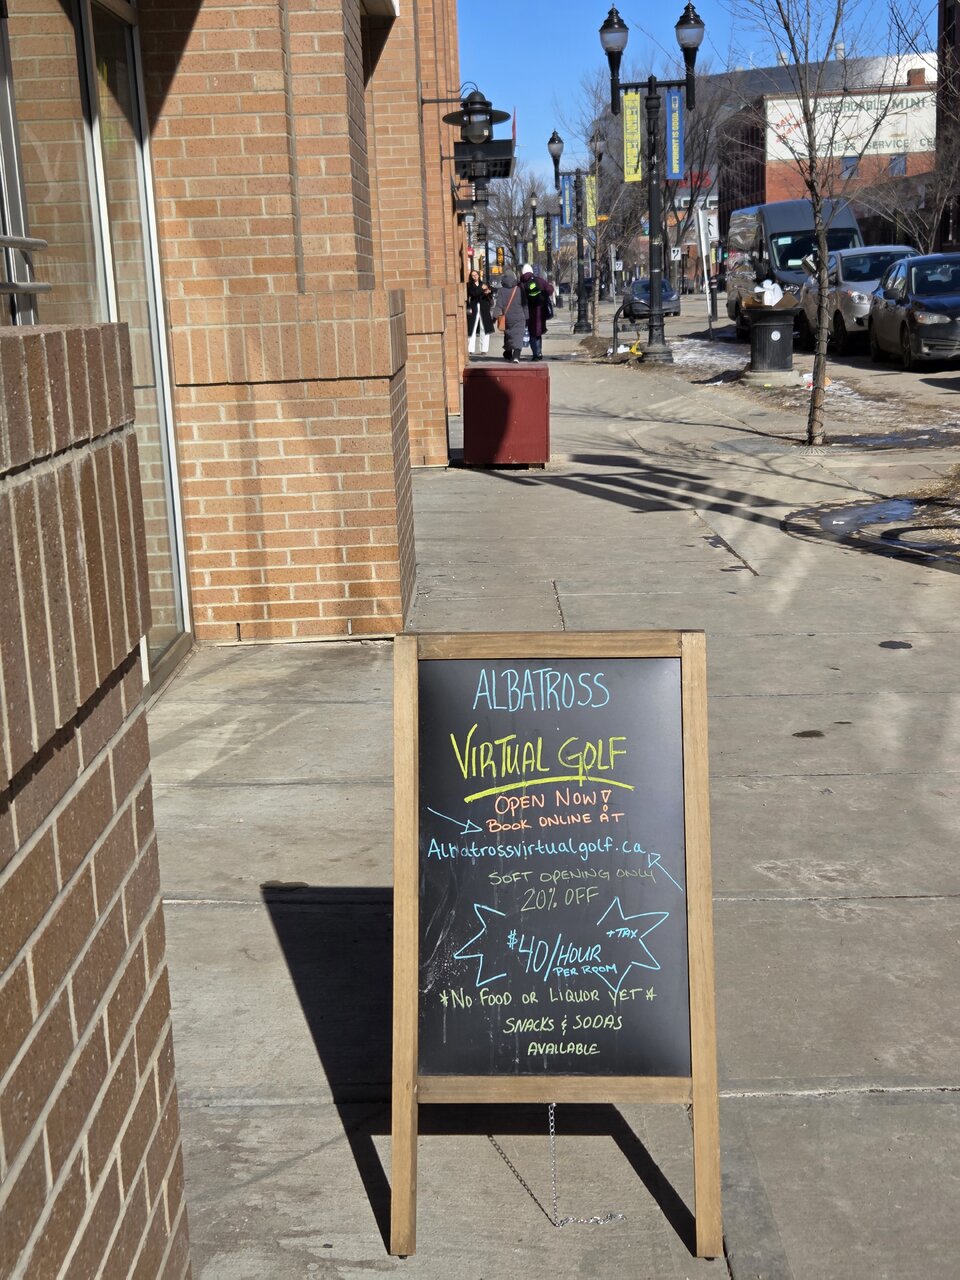 ALBATROSS
VIRTUAL GOLF
OPEN NOW!
BOOK ONLINE AT
Albatrossvirtualgolf.ca
SOFT OPENING ONLY
20% OFF
$40/HOUR
+TAX
PER ROOM
*NO FOOD OR LIQUOR YET*
SNACKS & SODAS
AVAILABLE
AFFORDABLE MINI S
SERVICE CE